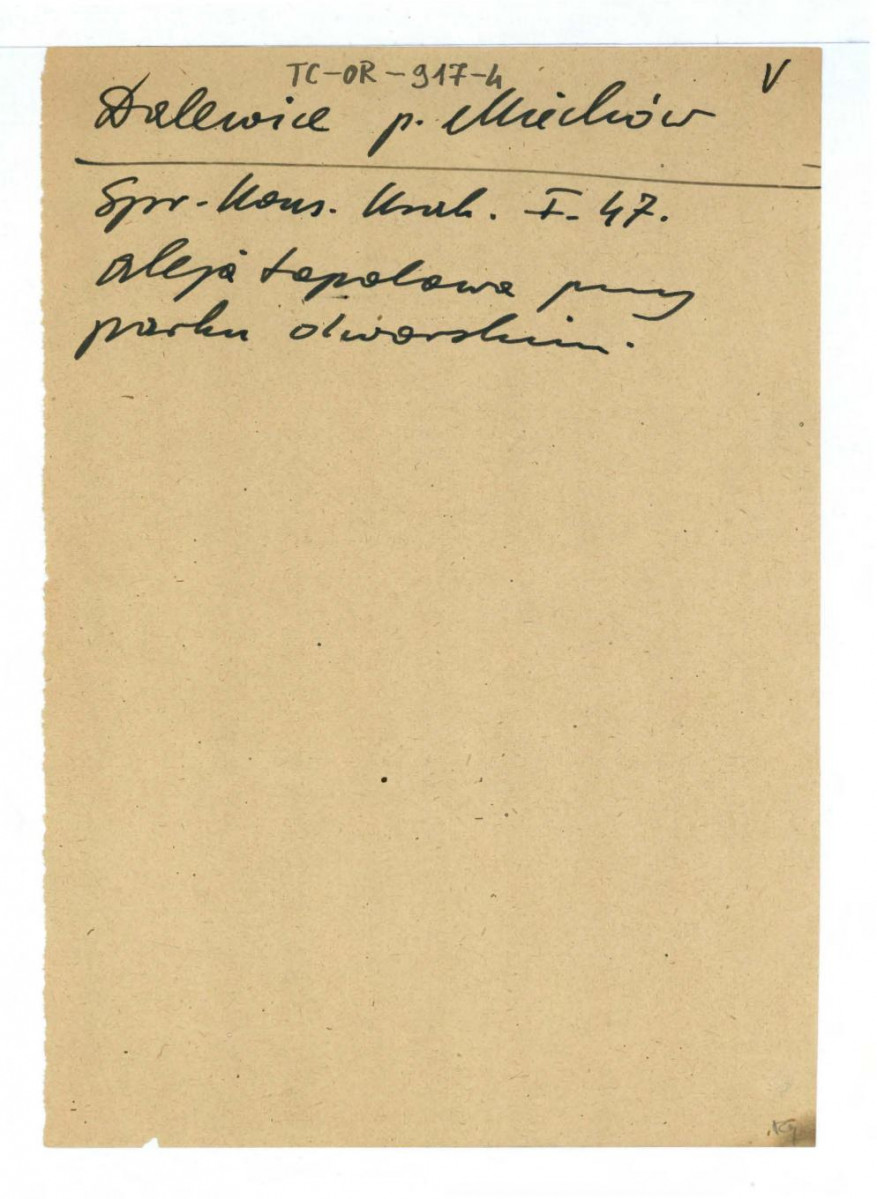 TC-OR-917-4
V
Dalewice p. Miechów
Spr. Kons. Krak. I. 47.
aleja topolowa przy
parku dworskim.